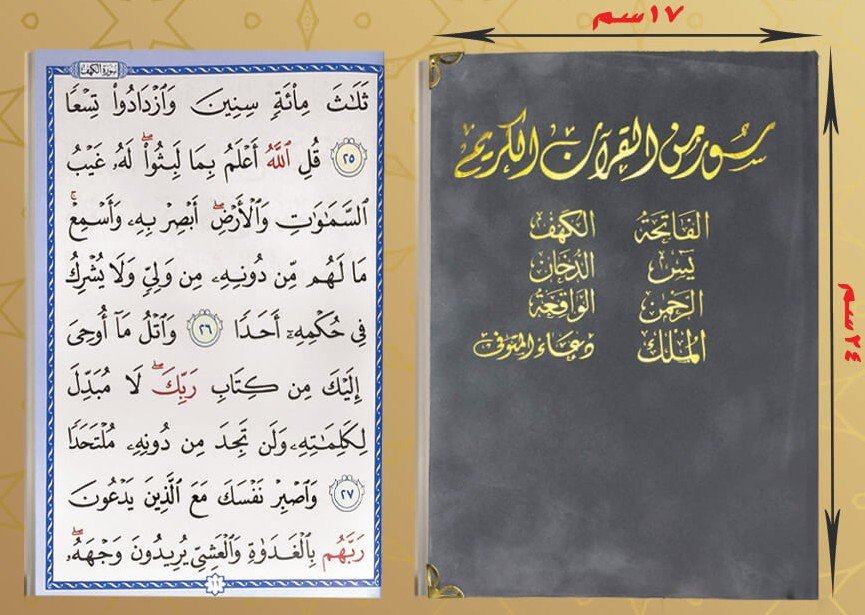 ١٧سم
سور من القرآن الكريم
الفاتحة الكهف
يس الدخان
الرحمن الواقعة
الملك دعاء المتوفى
٢٤سم
سورة الكهف
ثَلَٰثَ مِاْئَةٖ سِنِينَ وَٱزۡدَادُواْ تِسۡعٗا
٢٥ قُلِ ٱللَّهُ أَعۡلَمُ بِمَا لَبِثُواْۖ لَهُۥ غَيۡبُ
ٱلسَّمَٰوَٰتِ وَٱلۡأَرۡضِۖ أَبۡصِرۡ بِهِۦ وَأَسۡمِعۡۚ
مَا لَهُم مِّن دُونِهِۦ مِن وَلِيّٖ وَلَا يُشۡرِكُ
فِي حُكۡمِهِۦٓ أَحَدٗا ٢٦ وَٱتۡلُ مَآ أُوحِيَ
إِلَيۡكَ مِن كِتَابِ رَبِّكَۖ لَا مُبَدِّلَ
لِكَلِمَٰتِهِۦ وَلَن تَجِدَ مِن دُونِهِۦ مُلۡتَحَدٗا
٢٧ وَٱصۡبِرۡ نَفۡسَكَ مَعَ ٱلَّذِينَ يَدۡعُونَ
رَبَّهُم بِٱلۡغَدَوٰةِ وَٱلۡعَشِيِّ يُرِيدُونَ وَجۡهَهُۥۖ
١١